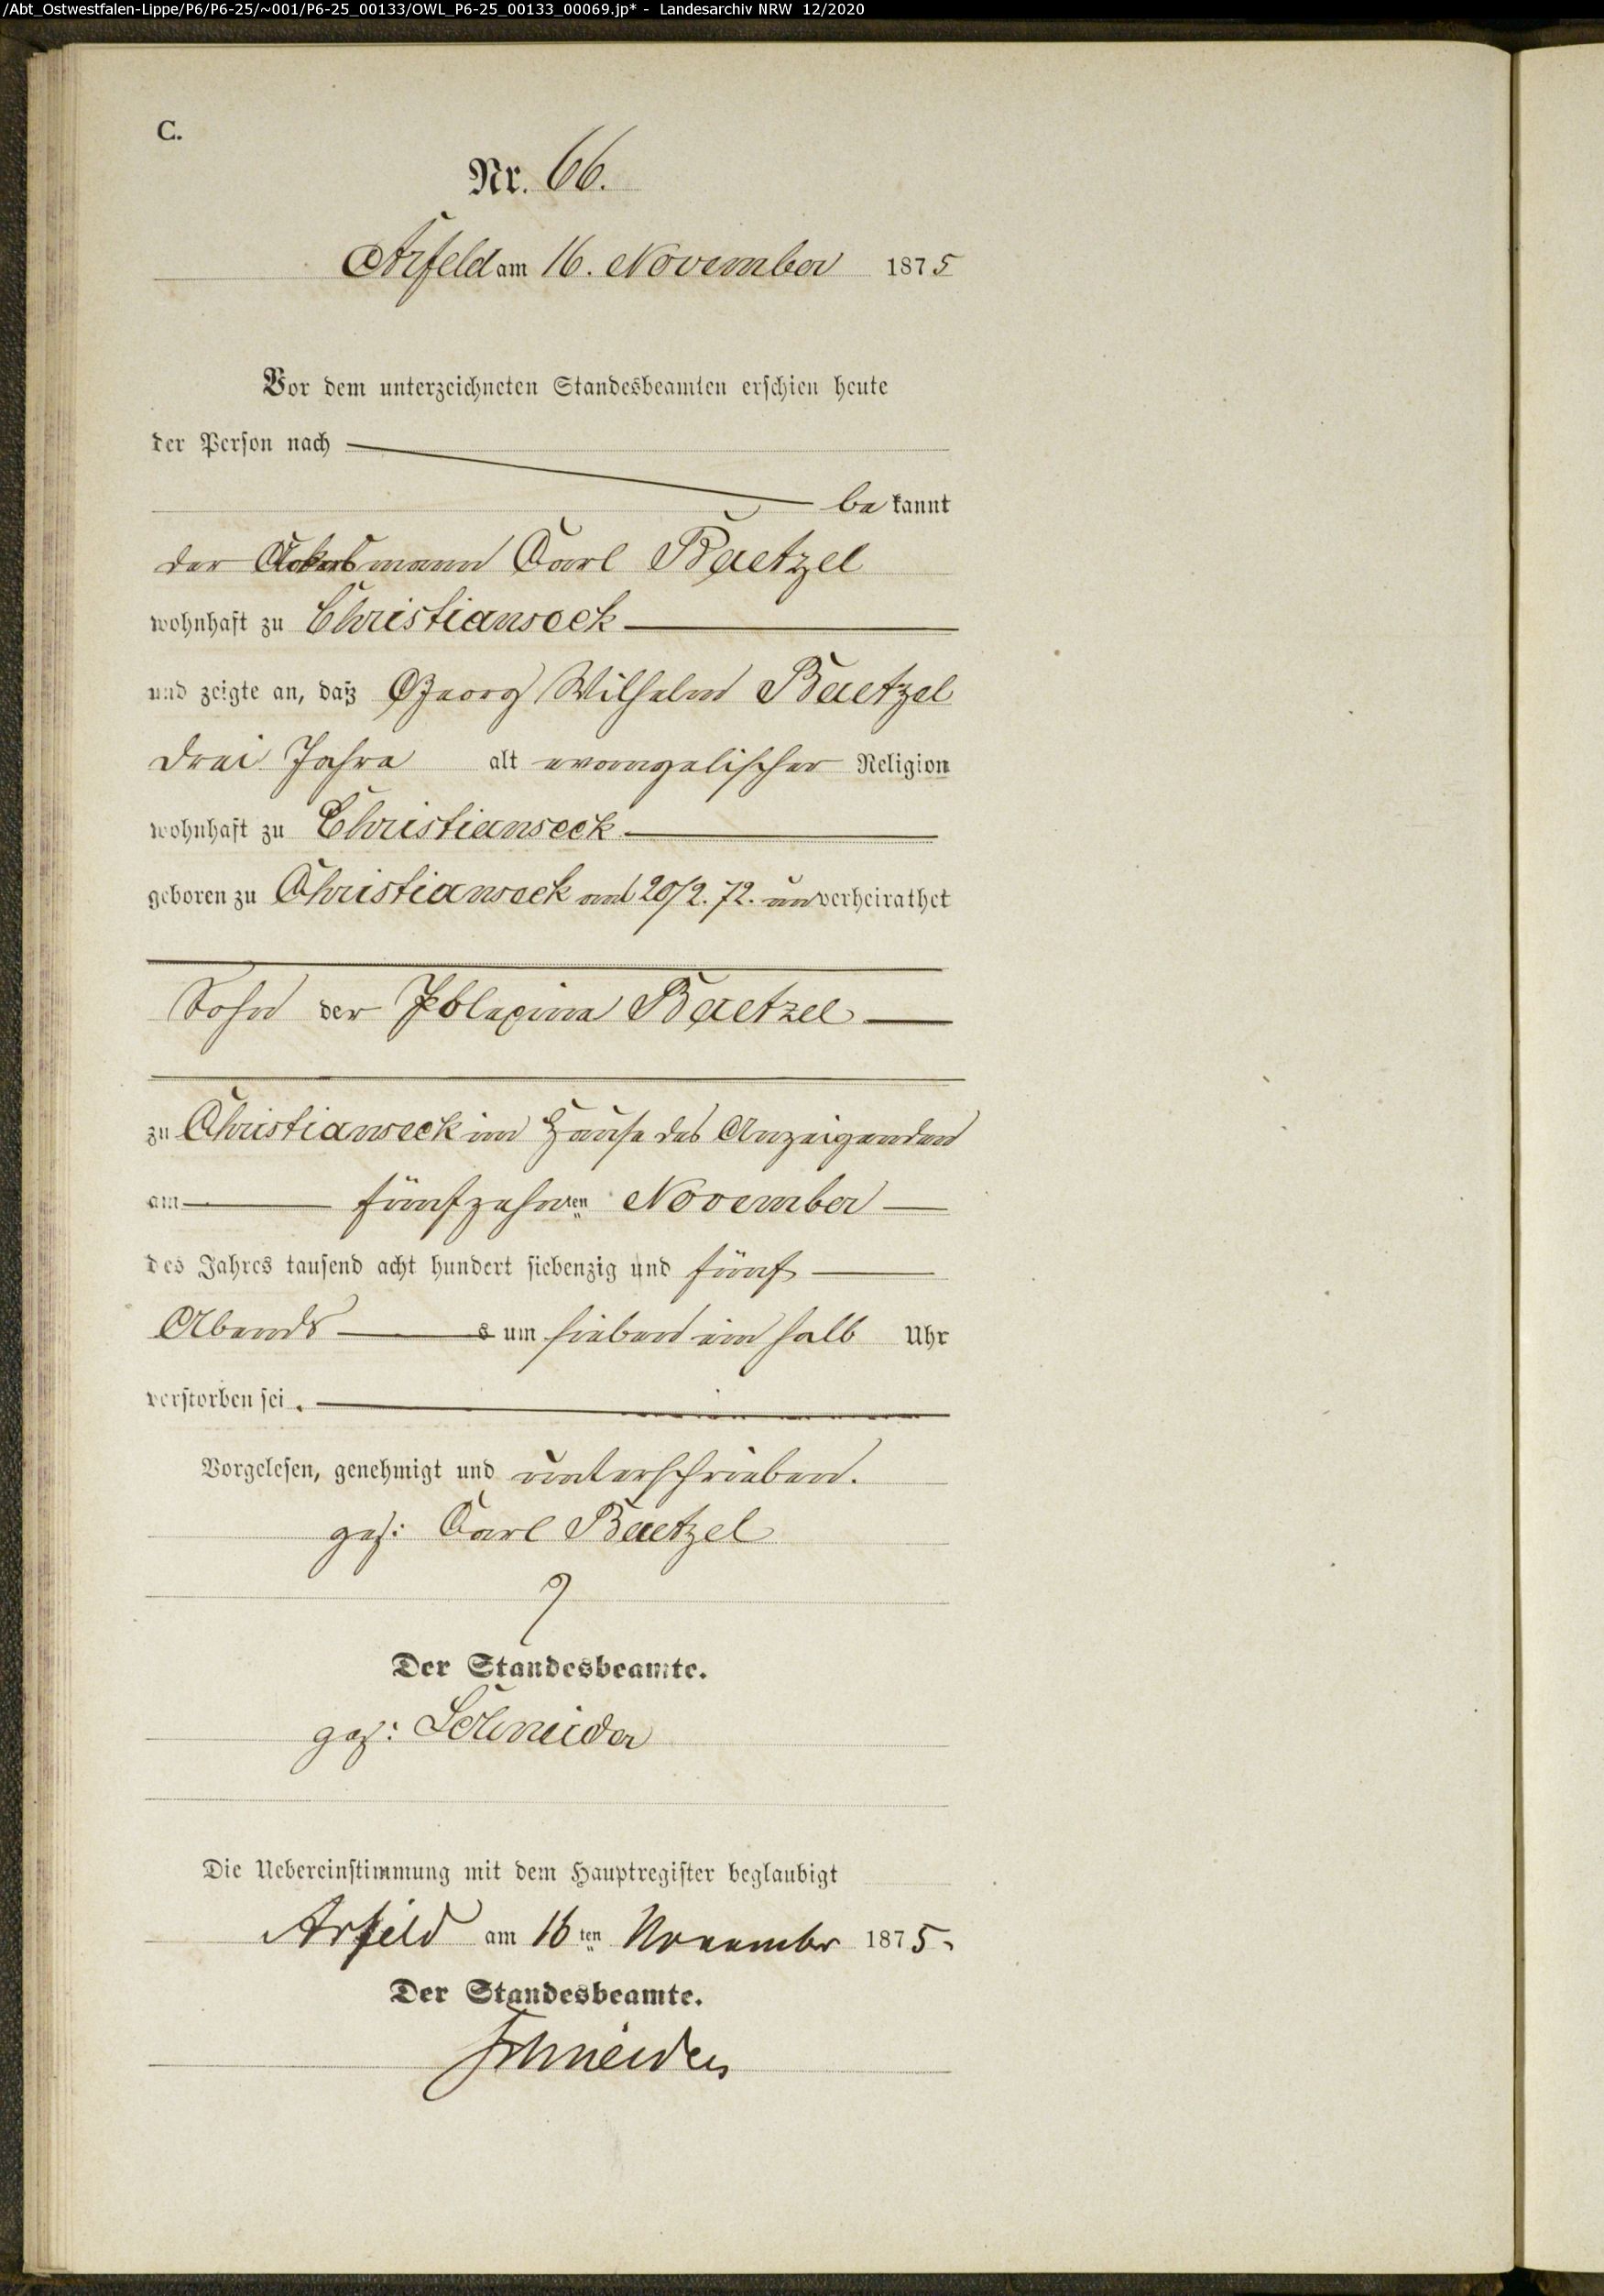 /Abt_Ostwestfalen-Lippe/P6/P6-25/~001/P6-25_00133/OWL_P6-25_00133_00069.jp* - Landesarchiv NRW 12/2020
C.
Nr. 66.
Arfeld am 16. November 1875
Vor dem unterzeichneten Standesbeamten erschien heute
der Person nach
bekannt
der Ackersmann Carl Baetzel
wohnhaft zu Christianseck
und zeigte an, daß Georg Wilhelm Baetzel
drei Jahre alt evangelischer Religion
wohnhaft zu Christianseck
geboren zu Christianseck am 20/2. 72. unverheirathet
Sohn der Baetzel
zu Christianseck im Hause des Anzeigenden
am fünfzehnten November
des Jahres tausend acht hundert siebenzig und fünf
Abends s um sieben ein halb Uhr
verstorben sei.
Vorgelesen, genehmigt und unterschrieben.
gez: Carl Baetzel
Der Standesbeamte.
gez: Schneider
Die Uebereinstimmung mit dem Hauptregister beglaubigt
Arfeld am 16ten November 1875.
Der Standesbeamte.
Schneider